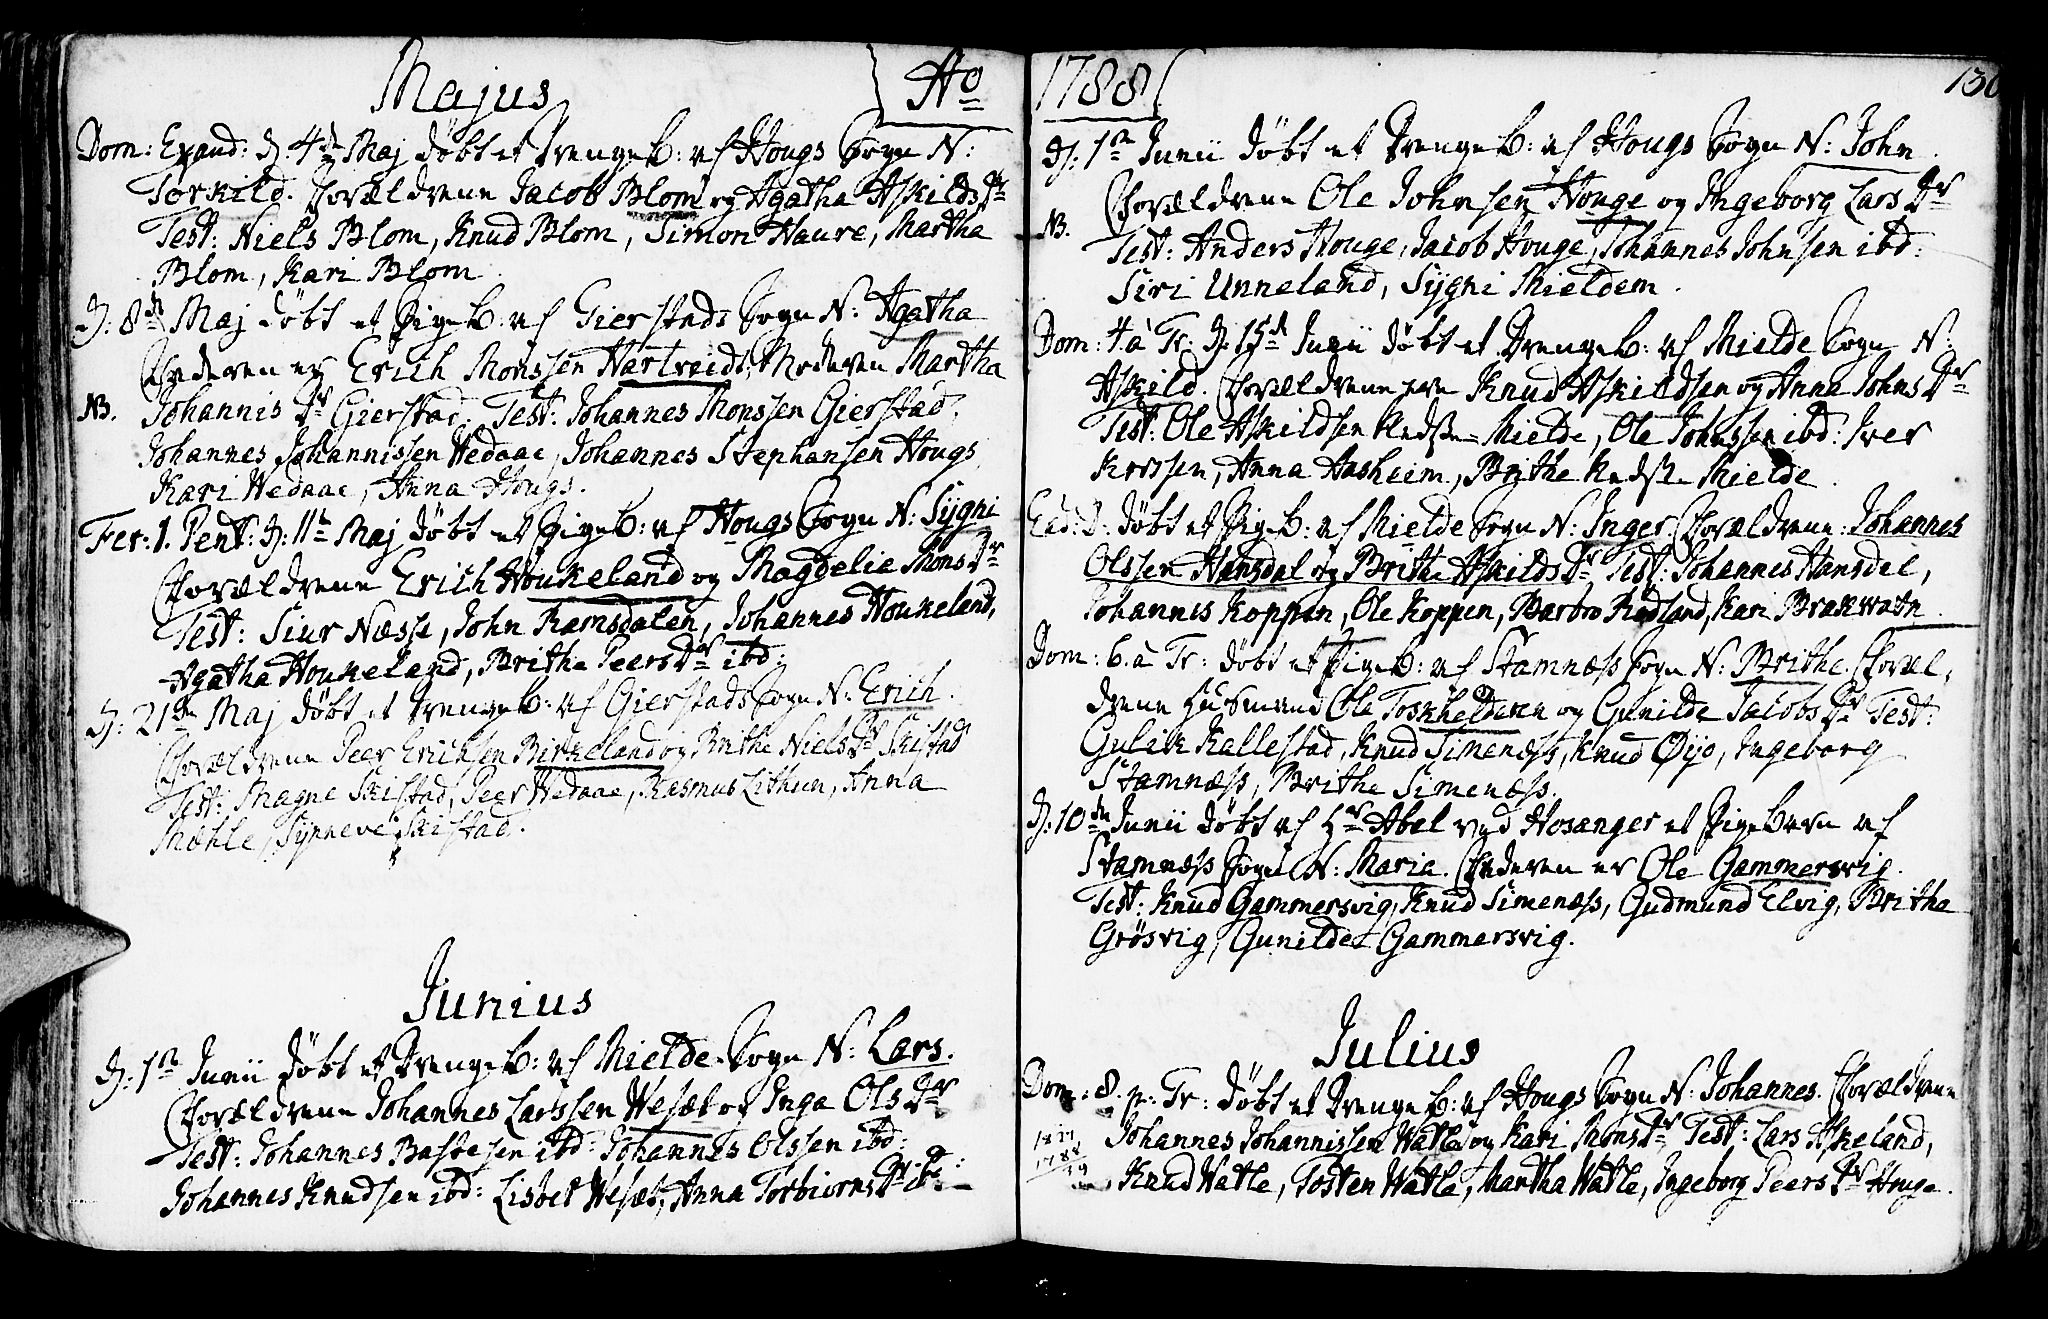 Majus
Ao
Dom: Exaud: D: 4de Maj døbt et Drengeb: af Hougs Sogn N:
Torkild. Forældrene Jacob Blom og Agatha Askilds Dr
Test: Niels Blom, Knud Blom, Simon Haure, Martha
Blom, Kari Blom.
D: 8de Maj døbt et Pigeb: af Gierstads Sogn N: Agatha
Faderen er Erich Monssen Hartveidt, Moderen Martha
NB. Johannis Dr Gierstad. Test: Johannes Monssen Gierstad,
Johannes Johannissen Wedaae, Johannes Stephansen Hougs,
Kari Wedaae, Anna Hougs.
Fer: 1. Pent: D: 11te Maj døbt et Pigeb: af Hougs Sogn N: Sygni
Forældrene Erich Houkeland og Magdelie Mons Dr
Test: Siur Næsse, John Ramsdalen, Johannes Houkeland,
Agatha Houkeland, Brithe Peers Dr ibd:
D: 21de Maj døbt et Drengeb: af Gierstads Sogn N: Erich.
Forældrene Peer Erichsen Birkeland og Brithe Niels Dr Skistad
Test: Magne Skistad, Peer Wedaae, Rasmus Lithun, Anna
Mæhle, Synneve Skistad.
Junius
D: 1te Junii døbt et Drengeb: af Mielde Sogn N: Lars.
Forældrene Johannes Larssen Wesæt og Inga Ols Dr
Test: Johannes Bastesen ibd: Johannes Olssen ibd:
Johannes Knudsen ibd: Lisbet Wesæt, Anna Torbiorns Dr ibd:
1788
130
D: 1te Junii døbt et Drengeb: af Hougs Sogn N: John.
Forældrene Ole Johnsen Houge og Ingeborg Lars Dr
NB.
Test: Anders Houge, Jacob Houge, Johannes Johnsen ibd:
Siri Unneland, Sygni Mieldem.
Dom: 4 à Tr: D: 15de Junii døbt et Drengeb: af Mielde Sogn N:
Askild. Forældrene ere Knud Askildsen og Anna Johns Dr
Test: Ole Askildsen Mielde, Ole Johnssen ibd: Iver
Anna Aasheim, Brithe Mielde.
Eod: D: døbt et Pigeb: af Mielde Sogn N: Inger. Forældrene: Johannes
Olssen Hansdal og Brithe Askilds Dr Test: Johannes Hansdal,
Johannes Koppen, Ole Koppen, Barbro Rødland, Kari Brakvatn.
Dom: 6. à Tr: døbt et Pigeb: af Stamness Sogn N: Brithe. Foræl,
drene Husmand Ole Toskhelderen og Gunilde Jacobs Dr Test:
Gulak Kallestad, Knud Simenæss, Knud Øyo, Ingeborg
Stamness, Brithe Simenæss.
D: 10de Junii døbt af Hr Abel ved Hosanger et Pigebarn af
Stamness Sogn N: Maria. Faderen er Ole Gammersvig.
Test: Knud Gammersvig, Knud Simenæss, Gudmund Elvig, Britha
Grøsvig, Gunilde Gammersvig.
Julius
Dom: 8. p: Tr: døbt et Drengeb: af Hougs Sogn N: Johannes. Forældrene
Johannes Johannissen Watle og Kari Mons Dr Test: Lars Askeland,
1788
Knud Watle, Tosten Watle, Martha Watle, Ingeborg Peers Dr Houge.